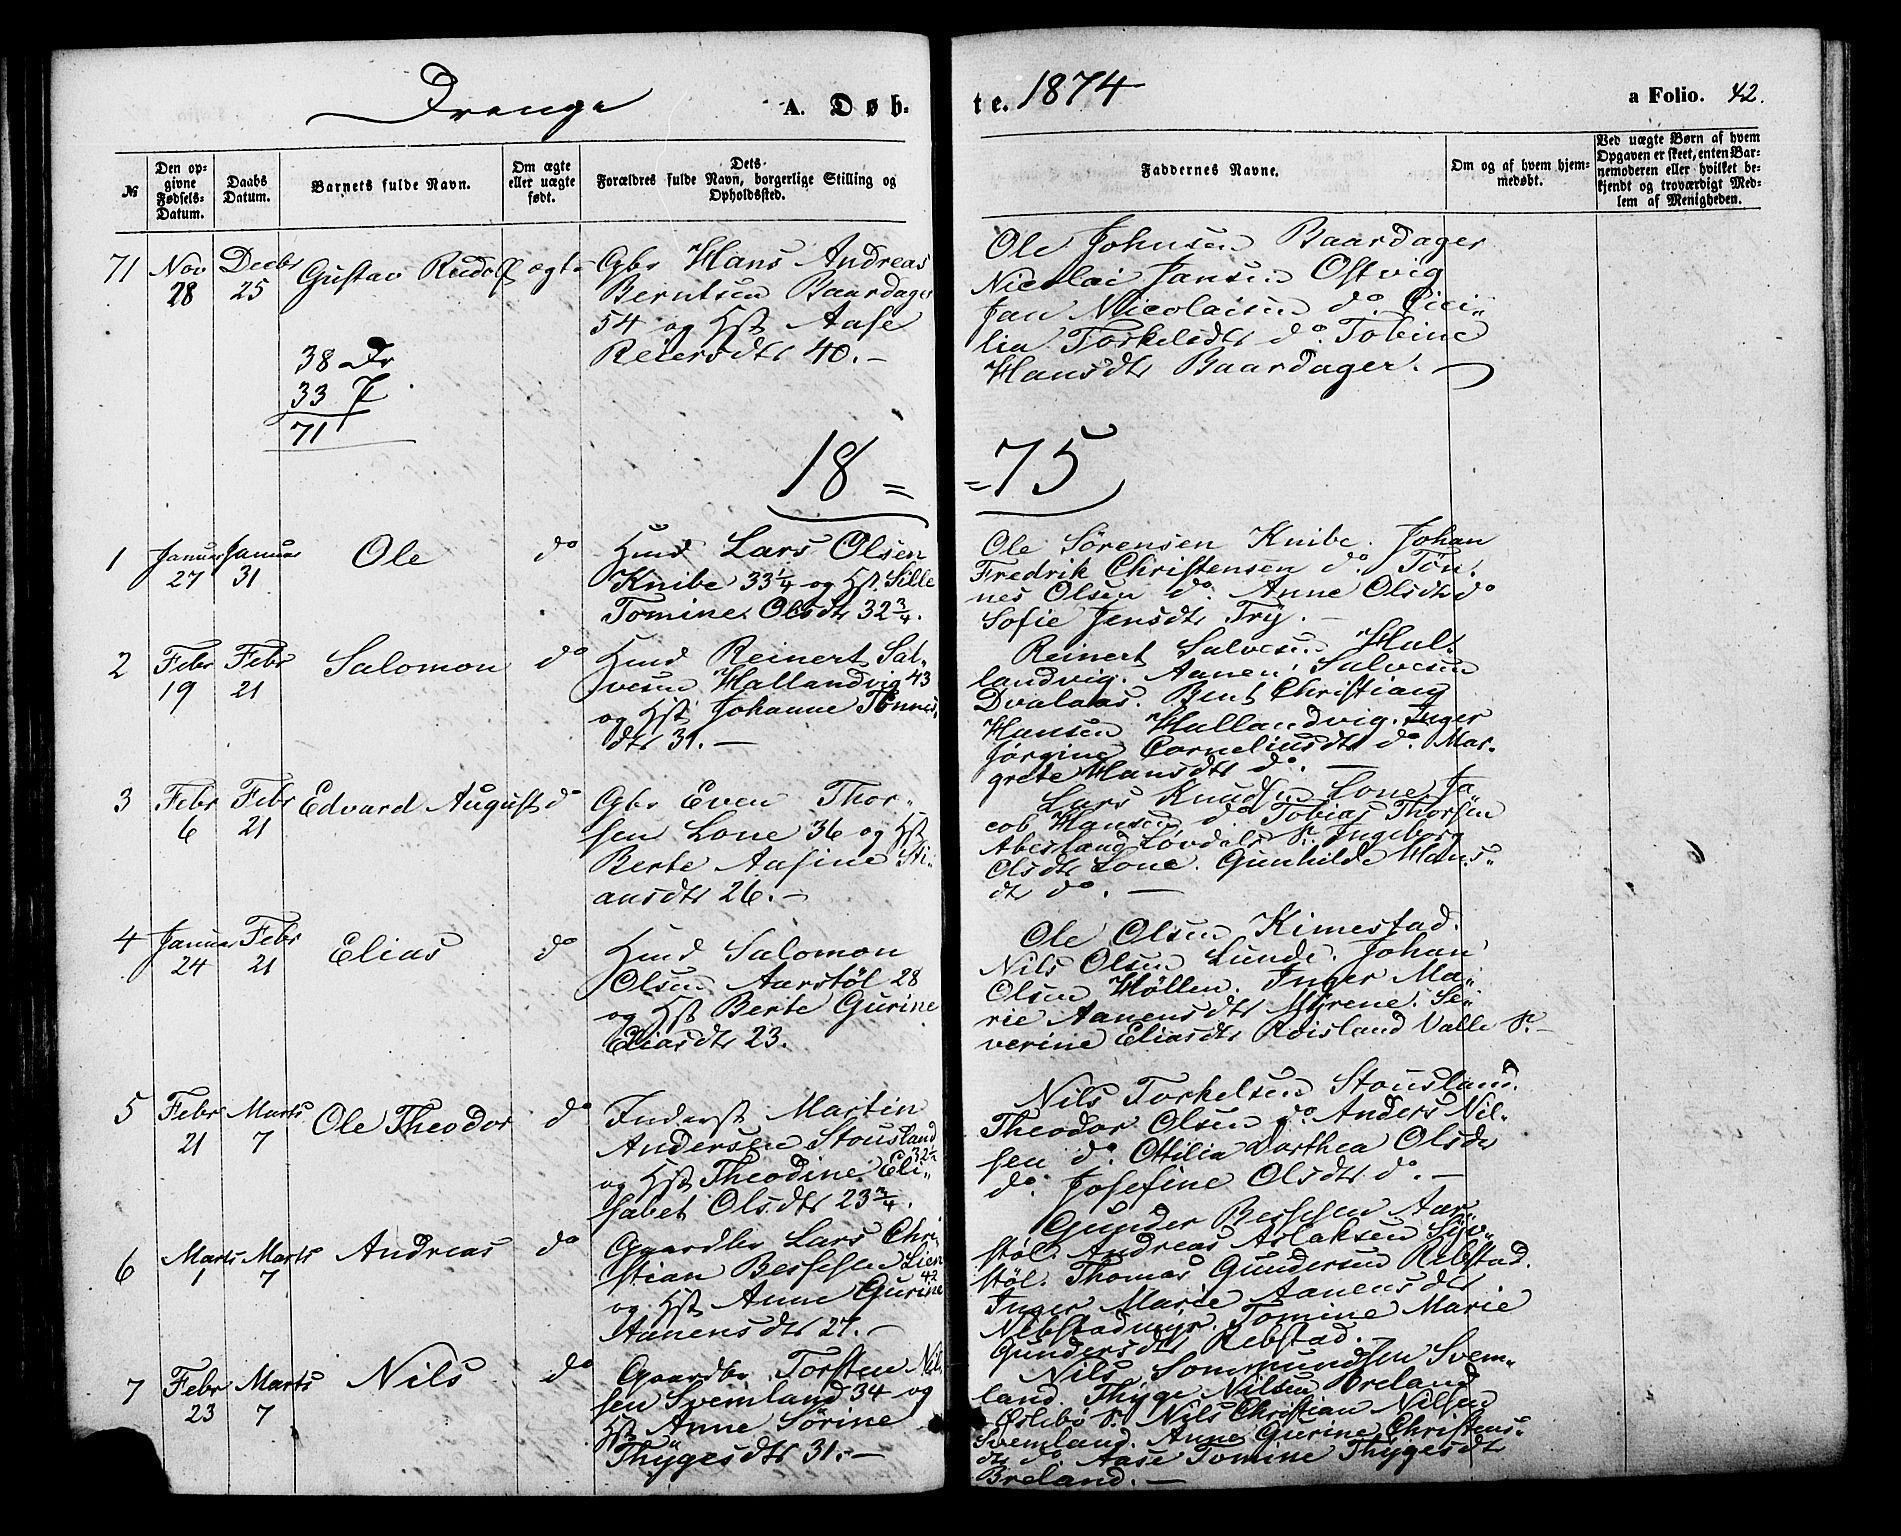 Drenge A. Døb-
te. 1874
a Folio. 42.
№
Den op-
givne
Fødsels-
Datum.
Daabs
Datum.
Barnets fulde Navn.
Om ægte
eller uægte
født.
Dets
Forældres fulde Navn, borgerlige Stilling og
Opholdssted.
Faddernes Navne.
Om og af hvem hjem-
medøbt.
Ved uægte Børn af hvem
Opgaven er skeet, enten Bar-
nemoderen eller hvilket be-
kjendt og troværdigt Med-
lem af Menigheden.
71 Nov 28 Decbr 25 Gustav Rudolf ægte
Gbr Hans Andreas
Berntsen Baardager
54 og Hst Aase
Reiersdtr 40.-
Ole Johnsen Baardager
Nicolai Jansen Ostvig
Jan Nicolaisen do. Cici-
lia Torkelsdtr do. Tobine
Hansdtr Baardager.
38 Dr
33 P
71
18=
=75
1 Januar 27 Januar 31 Ole do
Hmd Lars Olsen
Knibe 33¼ og Hst. Sille
Tomine Olsdtr 32¾.
Ole Sörensen Knibe. Johan
Fredrik Christensen do. Tön-
nes Olsen do. Anne Olsdtr do
Sofie Jensdtr Try. -
2 Febr 19 Febr 21 Salomon do
Hmd Reinert Sal-
vesen Hallandvig 43
og Hst Johanne Tönnes-
dtr 31.-
Reinert Salvesen Hal-
landvig. Aanen Salvesen
Dvalaas. Bent Christian
Hansen Hallandvig. Inger
Jörgine Corneliusdtr do. Mar-
grete Hansdtr do. -
3 Febr 6 Febr 21 Edvard August do
Gbr Even Thor-
sen Lone 36 og Hst
Berte Aasine Sti-
ansdtr 26.-
Lars Knudsen Lone Ja-
cob Hansen do. Tobias Thorsen
Abesland Lövdals S. Ingeborg
Olsdtr Lone. Gunhilde Hans-
dtr do. -
4 Januar 24 Febr 21 Elias do
Hmd Salomon
Olsen Aarstöl 28
og Hst Berte Gurine
Eliasdtr 23.
Ole Olsen Kimestad.
Nils Olsen Lunde. Johan
Olsen Höllen. Inger Ma-
rie Aanensdtr Myrene. Se-
verine Eliasdtr Röisland Valle S.-
5 Febr 21 Marts 7 Ole Theodor do
Inderst Martin
Andersen Stousland
32½
og Hst Theodine Eli-
sabet Olsdtr 23¾.
Nils Torkelsen Stousland.
Theodor Olsen do. Anders Nil-
sen do. Ottilia Dorthea Olsdtr
do. Josefine Olsdtr do. -
6 Marts 1 Marts 7 Andreas do
Gaardbr Lars Chri-
stian Bessesen Lien
42
og Hst Anne Gurine
Aanensdtr 27.-
Gunder Bessesen Aar-
stöl. Andreas Aslaksen Siv-
stöl. Thomas Gundersen Rebstad.
Inger Marie Aanensdtr
Rebstadmyr. Tomine Marie
Gundersdtr Rebstad.
7 Febr 23 Marts 7 Nils do
Gaardbr Torsten Nil-
sen Svemland 34 og
Hst Anne Sörine
Thygesdtr 31.-
Nils Sommundsen Svem-
land. Thyge Nilsen Breland
Öslebö S. Nils Christian Nilsen
Svemland. Anne Gurine Christens-
dtr do. Aase Tomine Thygesdtr
Breland. -